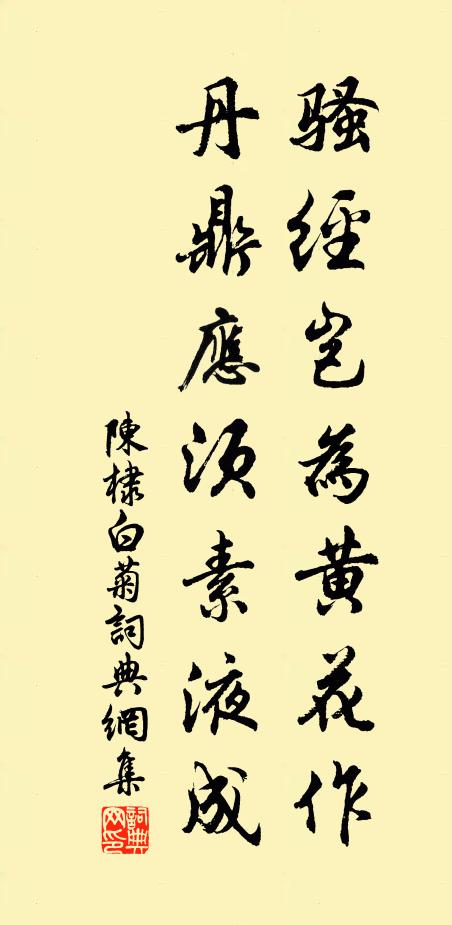 騷經豈為黃花作
丹鼎應須素液成
陳棣白菊詞典網集
詞典網印